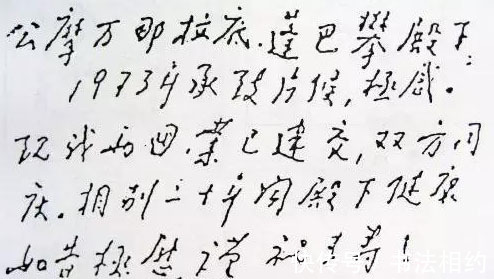 公摩万那拉底.蓬巴攀殿下:
1973年承致片候,极感。
现我两国.业已建交,双方同
庆.相别二十年闻殿下健康
如昔极慰谨祝长寿!
快传号/书法相约